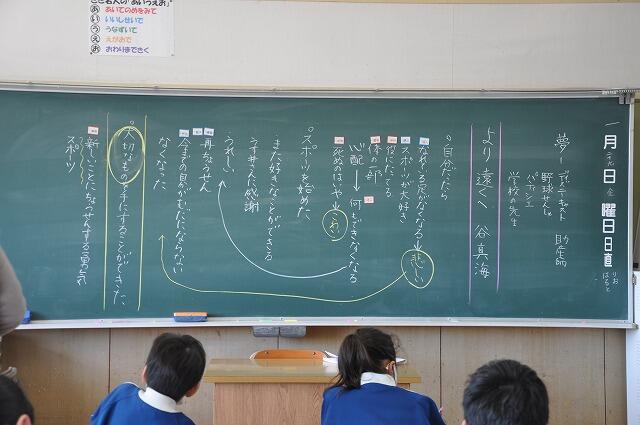 きき名人の「あいうえお」
あ あいてのめをみて
い いいしせいで
う うなずいて
え えがおで
お おわりまできく
一月 日 金 曜日 日直
りお
はると
夢ー
助産師
野球せんしゅ
パティシエ
学校の先生
より遠くへ 谷真海
自分だったら
なれる足がなくなる→悲しい
スポーツが大好き
役にたてる
体の一部
心配→何もできなくなる
死ぬのはいや→これ
スポーツを始めた
また好きなことができる
うれしい
再ちょうせん
今までの自分がむだにならない
なくなった
大切なものを手にすることができた。
新しいことにちょうせんする勇気
スポーツ